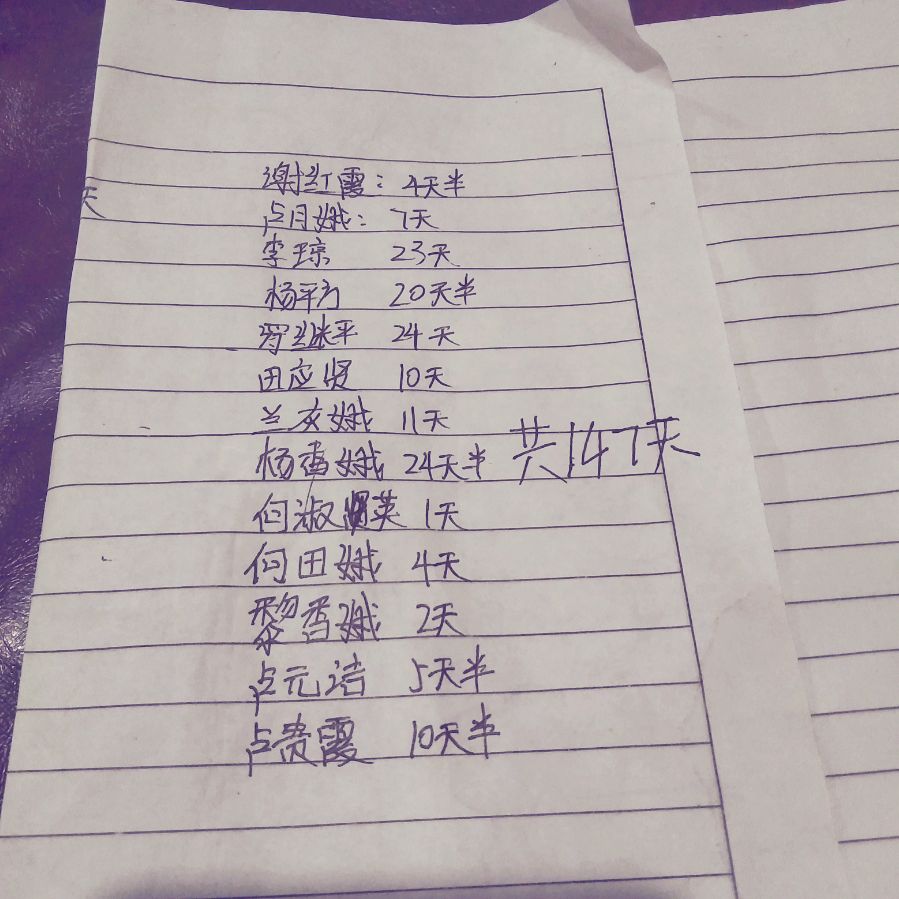 谢红霞：4天半
卢月娥：7天
李琼 23天
杨平方 20天半
罗继平 24天
田应贤 10天
兰友娥 11天
杨香娥 24天半
共147天
何淑英 1天
何田娥 4天
黎香娥 2天
卢元洁 5天半
卢贵霞 10天半
天